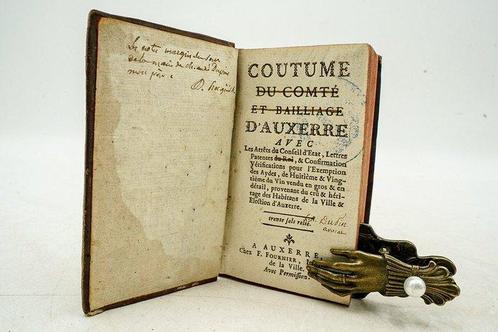 COUTUME
DU COMTÉ
ET BAILLIAGE
D'AUXERRE
AVEC
Les Arrêts du Conseil d'Etat, Lettres
Patentes du Roi, & Confirmation
Vérifications pour l'Exemption
des Aydes, de Huitiéme & Ving-
tiéme du Vin vendu en gros & en
détail, provenant du crû & héri-
tage des Habitans de la Ville &
Election d'Auxerre.
trente sols relié.
A AUXERRE,
Chez F. FOURNIER,
de la Ville.
Avec Permission.